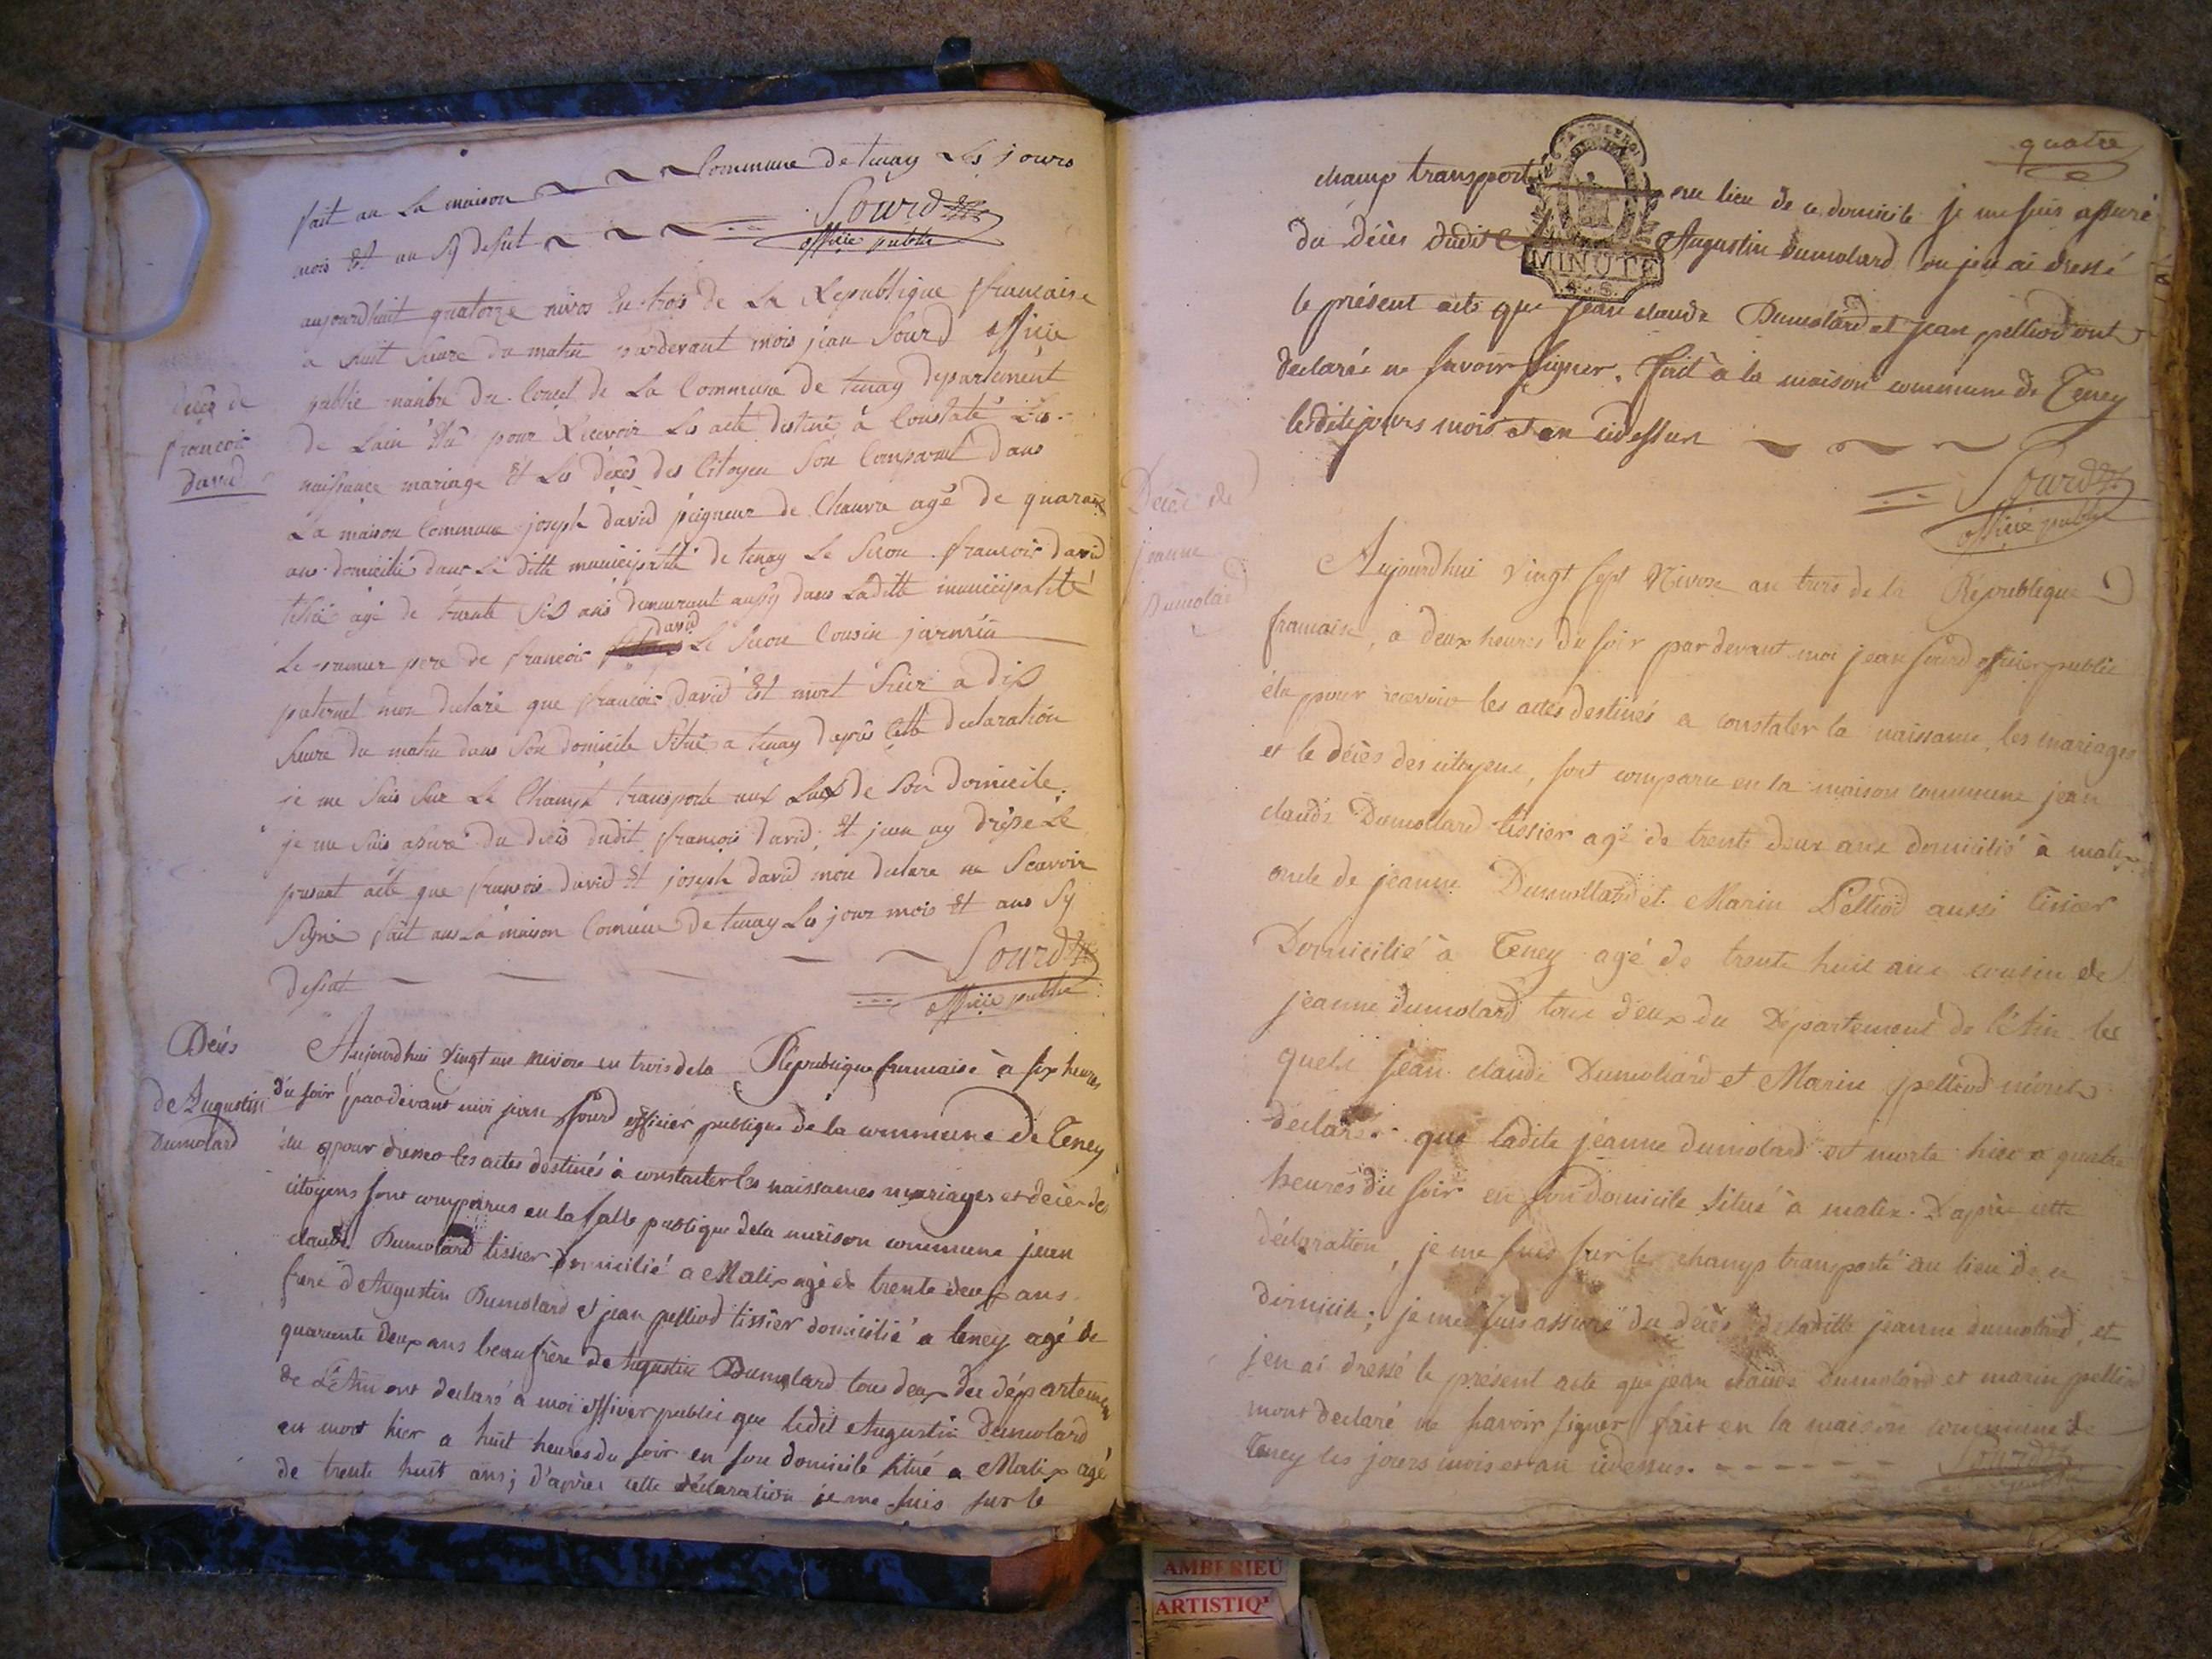 fait au la maison Commune de tenay les jours
mois Et an Sy desut
Sourd
officie public
décès de
françois
david
aujourdhuit quatorze nivos En trois de La Republique francaise
a huit heure du matin pardevant mois jean Sourd officie
public manbre du Consel de La Commune de tenay departement
de Lain Elu pour Recevoir Les acte destiné à Constaté Les
naissance mariage Et Les décès des Citoyen Son Comparut dans
La maison Commune joseph david peigneur de Chanvre agé de quarante
ans domicilié dans La ditte municipalité de tenay Le Secon francois david
agé de trente Sis ans demeurant aussy dans Laditte municipalité
Le premier pere de francois david Le Secon Cousin jarmin
paternel mon declaré que francois david Est mort hier a dix
heure du matin dans Son domicile Situé a tenay dapres Cette declaration
je me Suis Sur Le Champt transporte aux Lieux de Son domicile
je me Suis asuré du décès dudit francois david, Et jeen ay dressé Le
present acte que francois david Et joseph david mon declare ne Scavoir
Signé fait aus La maison Comune de tenay Les jour mois Et ans Sy
desut
Sourd
officie public
Décès
de Augustin
Dumolard
Aujourdhui vingt un nivose en trois de la République francaise à six heures
du soir pardevant moi jean Sourd officier publique de la commune de Teney
élu pour les actes destinés à constater les naissances mariages et décès des
citoyens sont comparus en la salle publique de la maison commune jean
claude Dumolard tissier domicilié a Matix agé de trente deux ans
frere d'Augustin Dumolard et jean pelliod tissier domicilié a teney agé de
quarante deux ans beau frère de Augustin Dumolard tous deux du département
de L'Ain ont declaré a moi officier public que ledit Augustin Dumolard
est mort hier a huit heures du soir en son domicile situé a Matix agé
de trente huit ans; d'après cette déclaration je me suis sur le
quatre
champ transporté au lieu de ce domicile je me suis assuré
du décès dudit Augustin Dumolard ou jen ai dressé
le présent acte que jean claude Dumolard et jean pelliod ont
declarée ne savoir signer. fait à la maison commune de Teney
leditsjours mois et an cidessus
MINUTE
Sourd
officie public
Décès de
jeanne
Dumolard
Aujourdhui vingt sept Nivose an trois de la République
francaise, a deux heures du soir pardevant moi jean sourd officier public
élu pour recevoir les actes destinés a constater la naissance, les mariages
et le décès des citoyens, sont comparu en la maison commune jean
claude Dumollard tissier agé de trente deux ans domicilié à matix
oncle de jeanne Dumollard et Marin Pelliod aussi tissier
Domicilié à Teney agé de trente huit ans cousin de
jeanne dumolard tous deux du Département de l'Ain les
quels jean claude Dumollard et Marin pelliod m'ont
déclaré que ladite jeanne dumolard est morte hier a quatre
heures du soir en son domicile situé à matix. D'après cette
déclaration, je me suis sur le champs transporté au lieu de ce
domicile; je me suis assuré du décès de laditte jeanne dumolard, et
jen ai dressé le présent acte que jean claude Dumolard et marin pelliod
mont declaré ne savoir signer fait en la maison commune de
Teney les jours mois et an cidessus.
Sourd
AMBERIEU
ARTISTIQ